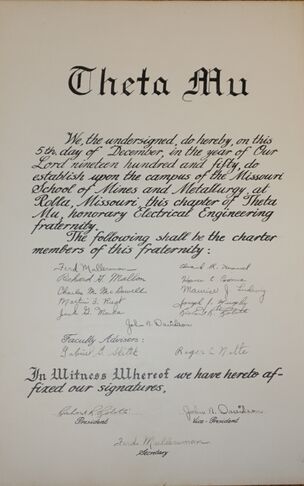 Theta Mu
We, the undersigned, do hereby, on this
5th day of December, in the year of Our
Lord nineteen hundred and fifty, do
establish upon the campus of the Missouri
School of Mines and Metallurgy, at
Rolla, Missouri, this chapter of Theta
Mu, honorary Electrical Engineering
fraternity.
The following shall be the charter
members of this fraternity:
Ferd Mullerman
Richard G.
Charles M. McDowell
Martin
Jack G.
Maurice J.
Joseph F. Murphy
John A. Davidson
Faculty Advisers:
Gabriel G. Skitek
Roger E. Nolte
In Witness Whereof we have hereto af-
fixed our signatures,
President
John A. Davidson
Vice-President
Ferd Mullerman
Secretary